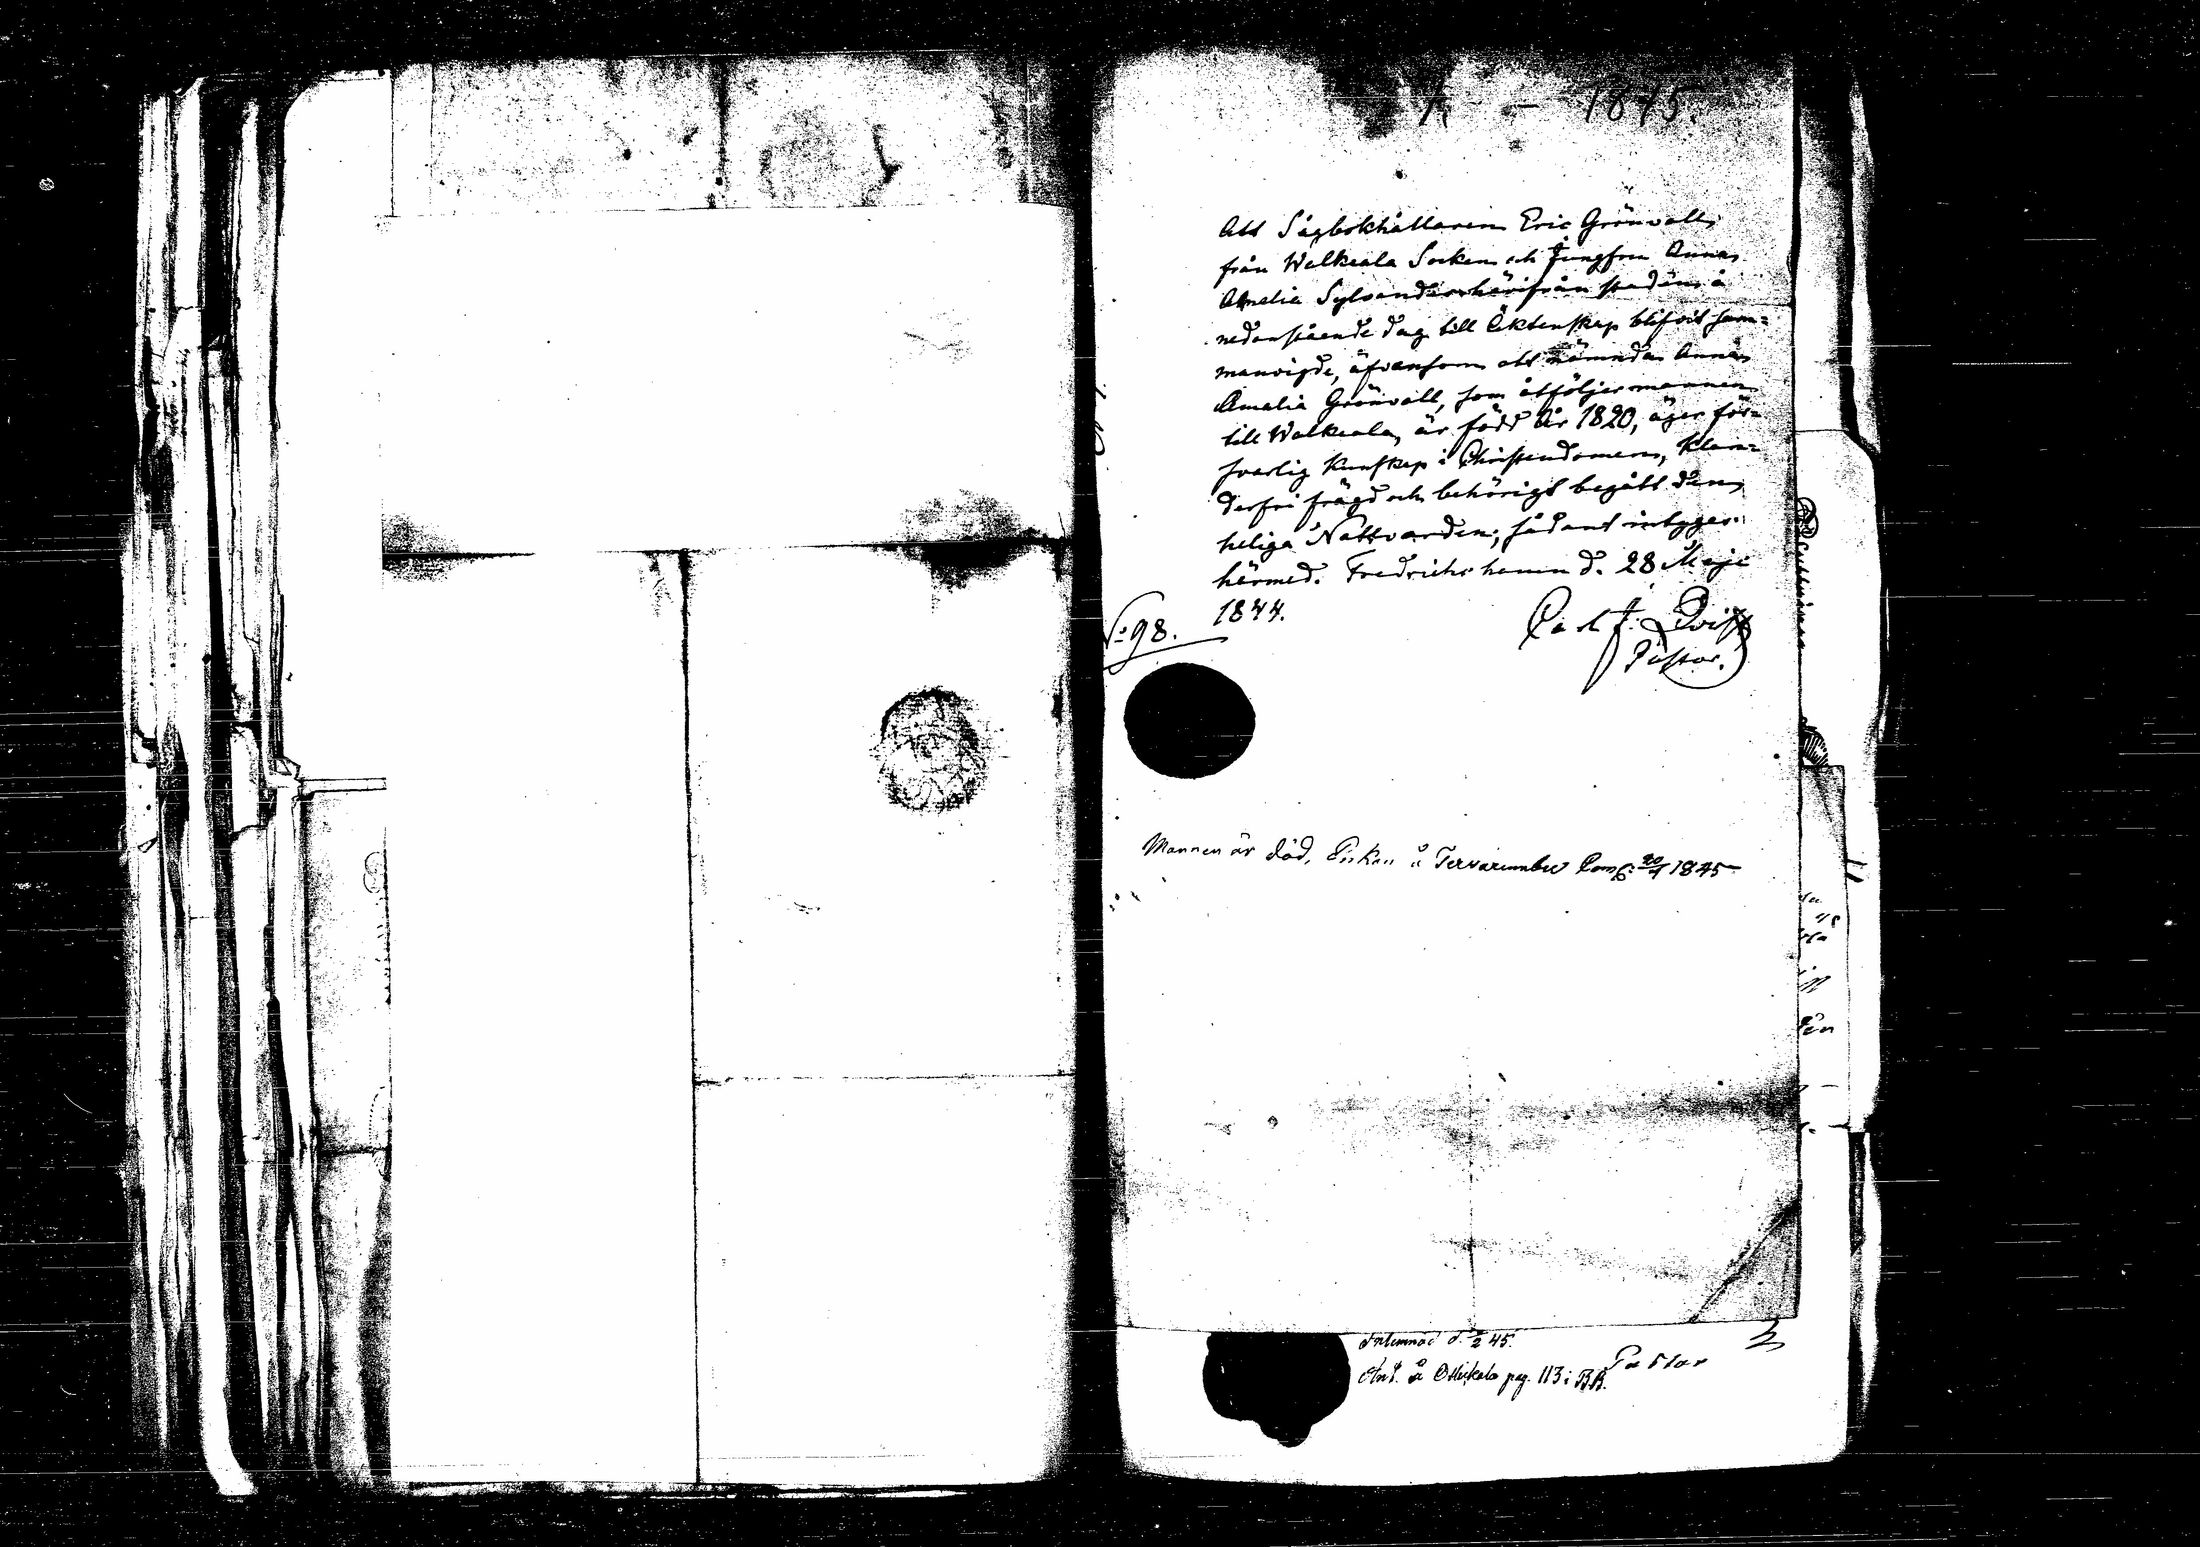 1. — 1845.
Att Sågbokhållaren Eric Grönvall,
från Walkeala Socken och Jungfrun Anna
Amelia Sylvander härifrån staden, å
nedanstående dag till Äktenskap blifvit sam=
manvigde, äfvensom att nämnda Anna
Amalia Grönvall, som åtföljer mannen
till Walkeala, är född År 1820, äger för=
svarlig kunskap i Christendomen, klan=
derfri frägd och behörigt begått den
heliga Nattvarden; sådant intygar
härmed. Fredrichshamn d. 28 Maji
1844.
No 98.
Carl F.
Pastor.
Mannen är död, Enkan å 20/4 1845
d. 2 45.
Ant. å pag. 113 i B.B.
Pastor